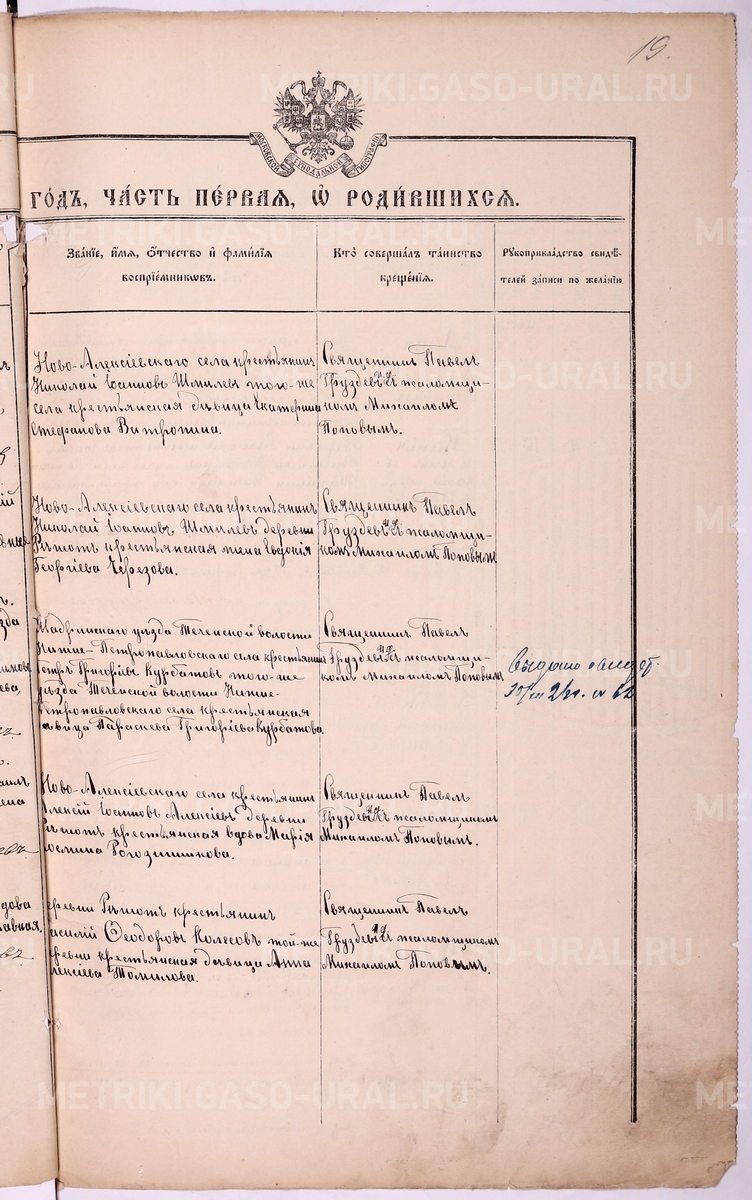 19.
МОСКОВСКОЙ СѴНОДАЛЬНОЙ ТИПОГРАФІИ
ГОДЪ, ЧАСТЬ ПЕРВАЯ, Ѡ РОДИВШИХСЯ.
Званіе, имя, отчество и фамилія
воспріемниковъ.
Кто совершалъ таинство
крещенія.
Рукоприкладство свидѣ-
телей записи по желанію.
Ново-Алексіевскаго села крестьянин
Николай Іоаннов Шмилев того-же
села крестьянская дѣвица Екатерина
Стефанова Витропина.
Священник Павел
Груздевъ и.д. псаломщи-
комъ Михаиломъ
Поповымъ.
Ново-Алексіевскаго села крестьянин
Николай Іоаннов Шмилевъ деревни
крестьянская жена Евдокія
Георгіева Черезова.
Священник Павел
Груздевъ и.д. псаломщи-
комъ Михаиломъ Поповымъ
Шадринскаго уѣзда Теченской волости
Петропавловскаго села крестьянин
Петръ Григорьев Курбатовъ того-же
уѣзда Теченской волости
Петропавловскаго села крестьянская
дѣвица Параскева Григоріева Курбатова.
Священник Павел
Груздевъ и.д. псаломщи-
комъ Михаиломъ Поповым
Выдано
Ново-Алексіевскаго села крестьянин
Алексій Іоаннов Алексѣевъ деревни
крестьянская вдова Марія
Рогозинникова.
Священник Павел
Груздевъ и.д. псаломщиком
Михаиломъ Поповымъ.
деревни крестьянин
Василій Ѳеодоровъ Колесовъ той-же
деревни крестьянская дѣвица Анна
Алексіева Томилова.
Священник Павел
Груздевъ и.д. псаломщикомъ
Михаиломъ Поповымъ.
METRIKI.GASO-URAL.RU